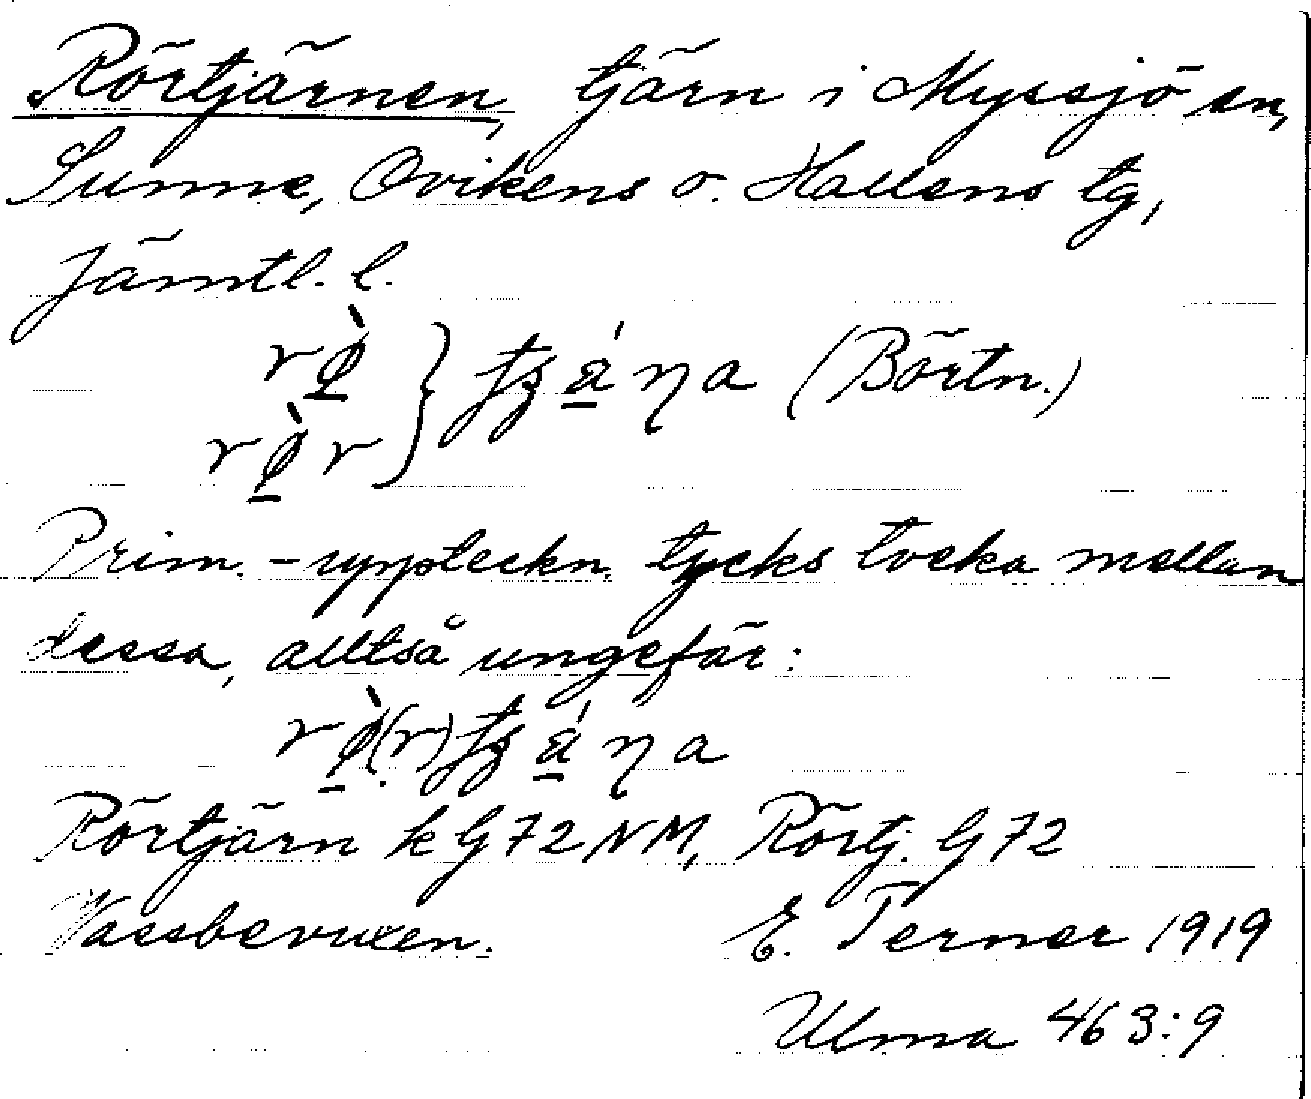 Rörtjärnen, tjärn i Myssjö sn,
Sunne, Ovikens o. Hallens tg,
Jämtl. l.
(Börtn.)
Prim.-uppteckn. tycks tveka mellan
dessa, alltså ungefär:
Rörtjärn k G72NM, Rörtj. G72
Vassbevuxen. E. Terner 1919
Ulma 463:9